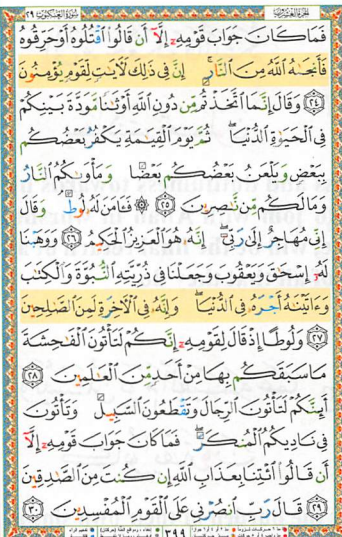 الجزء العشرون سورة العنكبوت ٢٩
فَمَا كَانَ جَوَابَ قَوْمِهِۦٓ إِلَّآ أَن قَالُوا۟ ٱقْتُلُوهُ أَوْ حَرِّقُوهُ
فَأَنجَىٰهُ ٱللَّهُ مِنَ ٱلنَّارِ ۚ إِنَّ فِى ذَٰلِكَ لَءَايَٰتٍ لِّقَوْمٍ يُؤْمِنُونَ
٢٤ وَقَالَ إِنَّمَا ٱتَّخَذْتُم مِّن دُونِ ٱللَّهِ أَوْثَٰنًا مَّوَدَّةَ بَيْنِكُمْ
فِى ٱلْحَيَوٰةِ ٱلدُّنْيَا ۖ ثُمَّ يَوْمَ ٱلْقِيَٰمَةِ يَكْفُرُ بَعْضُكُم
بِبَعْضٍ وَيَلْعَنُ بَعْضُكُم بَعْضًا وَمَأْوَىٰكُمُ ٱلنَّارُ
وَمَا لَكُم مِّن نَّٰصِرِينَ ٢٥ ۞ فَـَٔامَنَ لَهُۥ لُوطٌ ۘ وَقَالَ
إِنِّى مُهَاجِرٌ إِلَىٰ رَبِّىٓ ۖ إِنَّهُۥ هُوَ ٱلْعَزِيزُ ٱلْحَكِيمُ ٢٦ وَوَهَبْنَا
لَهُۥٓ إِسْحَٰقَ وَيَعْقُوبَ وَجَعَلْنَا فِى ذُرِّيَّتِهِ ٱلنُّبُوَّةَ وَٱلْكِتَٰبَ
وَءَاتَيْنَٰهُ أَجْرَهُۥ فِى ٱلدُّنْيَا ۖ وَإِنَّهُۥ فِى ٱلْءَاخِرَةِ لَمِنَ ٱلصَّٰلِحِينَ
٢٧ وَلُوطًا إِذْ قَالَ لِقَوْمِهِۦٓ إِنَّكُمْ لَتَأْتُونَ ٱلْفَٰحِشَةَ
مَا سَبَقَكُم بِهَا مِنْ أَحَدٍ مِّنَ ٱلْعَٰلَمِينَ ٢٨
أَئِنَّكُمْ لَتَأْتُونَ ٱلرِّجَالَ وَتَقْطَعُونَ ٱلسَّبِيلَ وَتَأْتُونَ
فِى نَادِيكُمُ ٱلْمُنكَرَ ۖ فَمَا كَانَ جَوَابَ قَوْمِهِۦٓ إِلَّآ
أَن قَالُوا۟ ٱئْتِنَا بِعَذَابِ ٱللَّهِ إِن كُنتَ مِنَ ٱلصَّٰدِقِينَ
٢٩ قَالَ رَبِّ ٱنصُرْنِى عَلَى ٱلْقَوْمِ ٱلْمُفْسِدِينَ ٣٠
٣٩٩